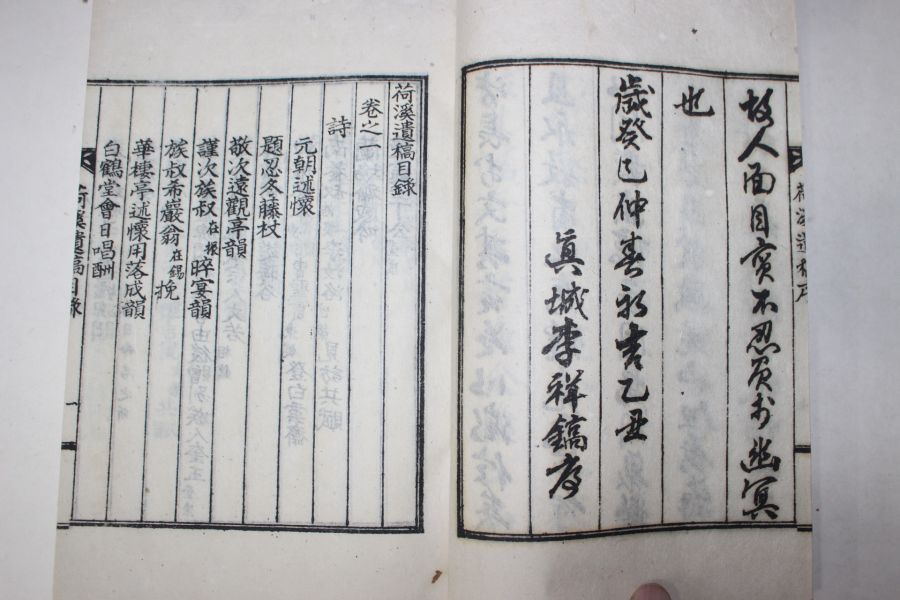 故人面目實不忍負於幽冥
也
歲癸巳仲春初吉乙丑
眞城李祥鎬序
荷溪遺稿目錄
卷之一
詩
元朝述懷
題忍冬藤杖
敬次遠觀亭韻
謹次族叔在根晬宴韻
族叔希巖翁在錫挽
華樓亭述懷用落成韻
白鶴堂會日唱酬
荷溪遺稿目錄
一